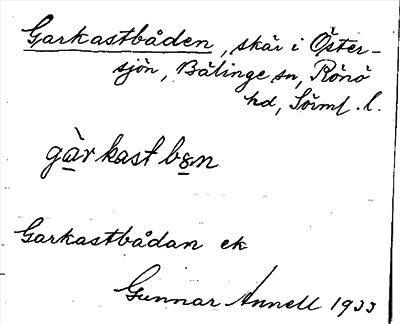 Garkastbåden, skär i Öster-
sjön, Bälinge sn, Rönö
hd, Sörml. l.
gàrkast bɷn
Garkastbådan ek
Gunnar Annell 1933